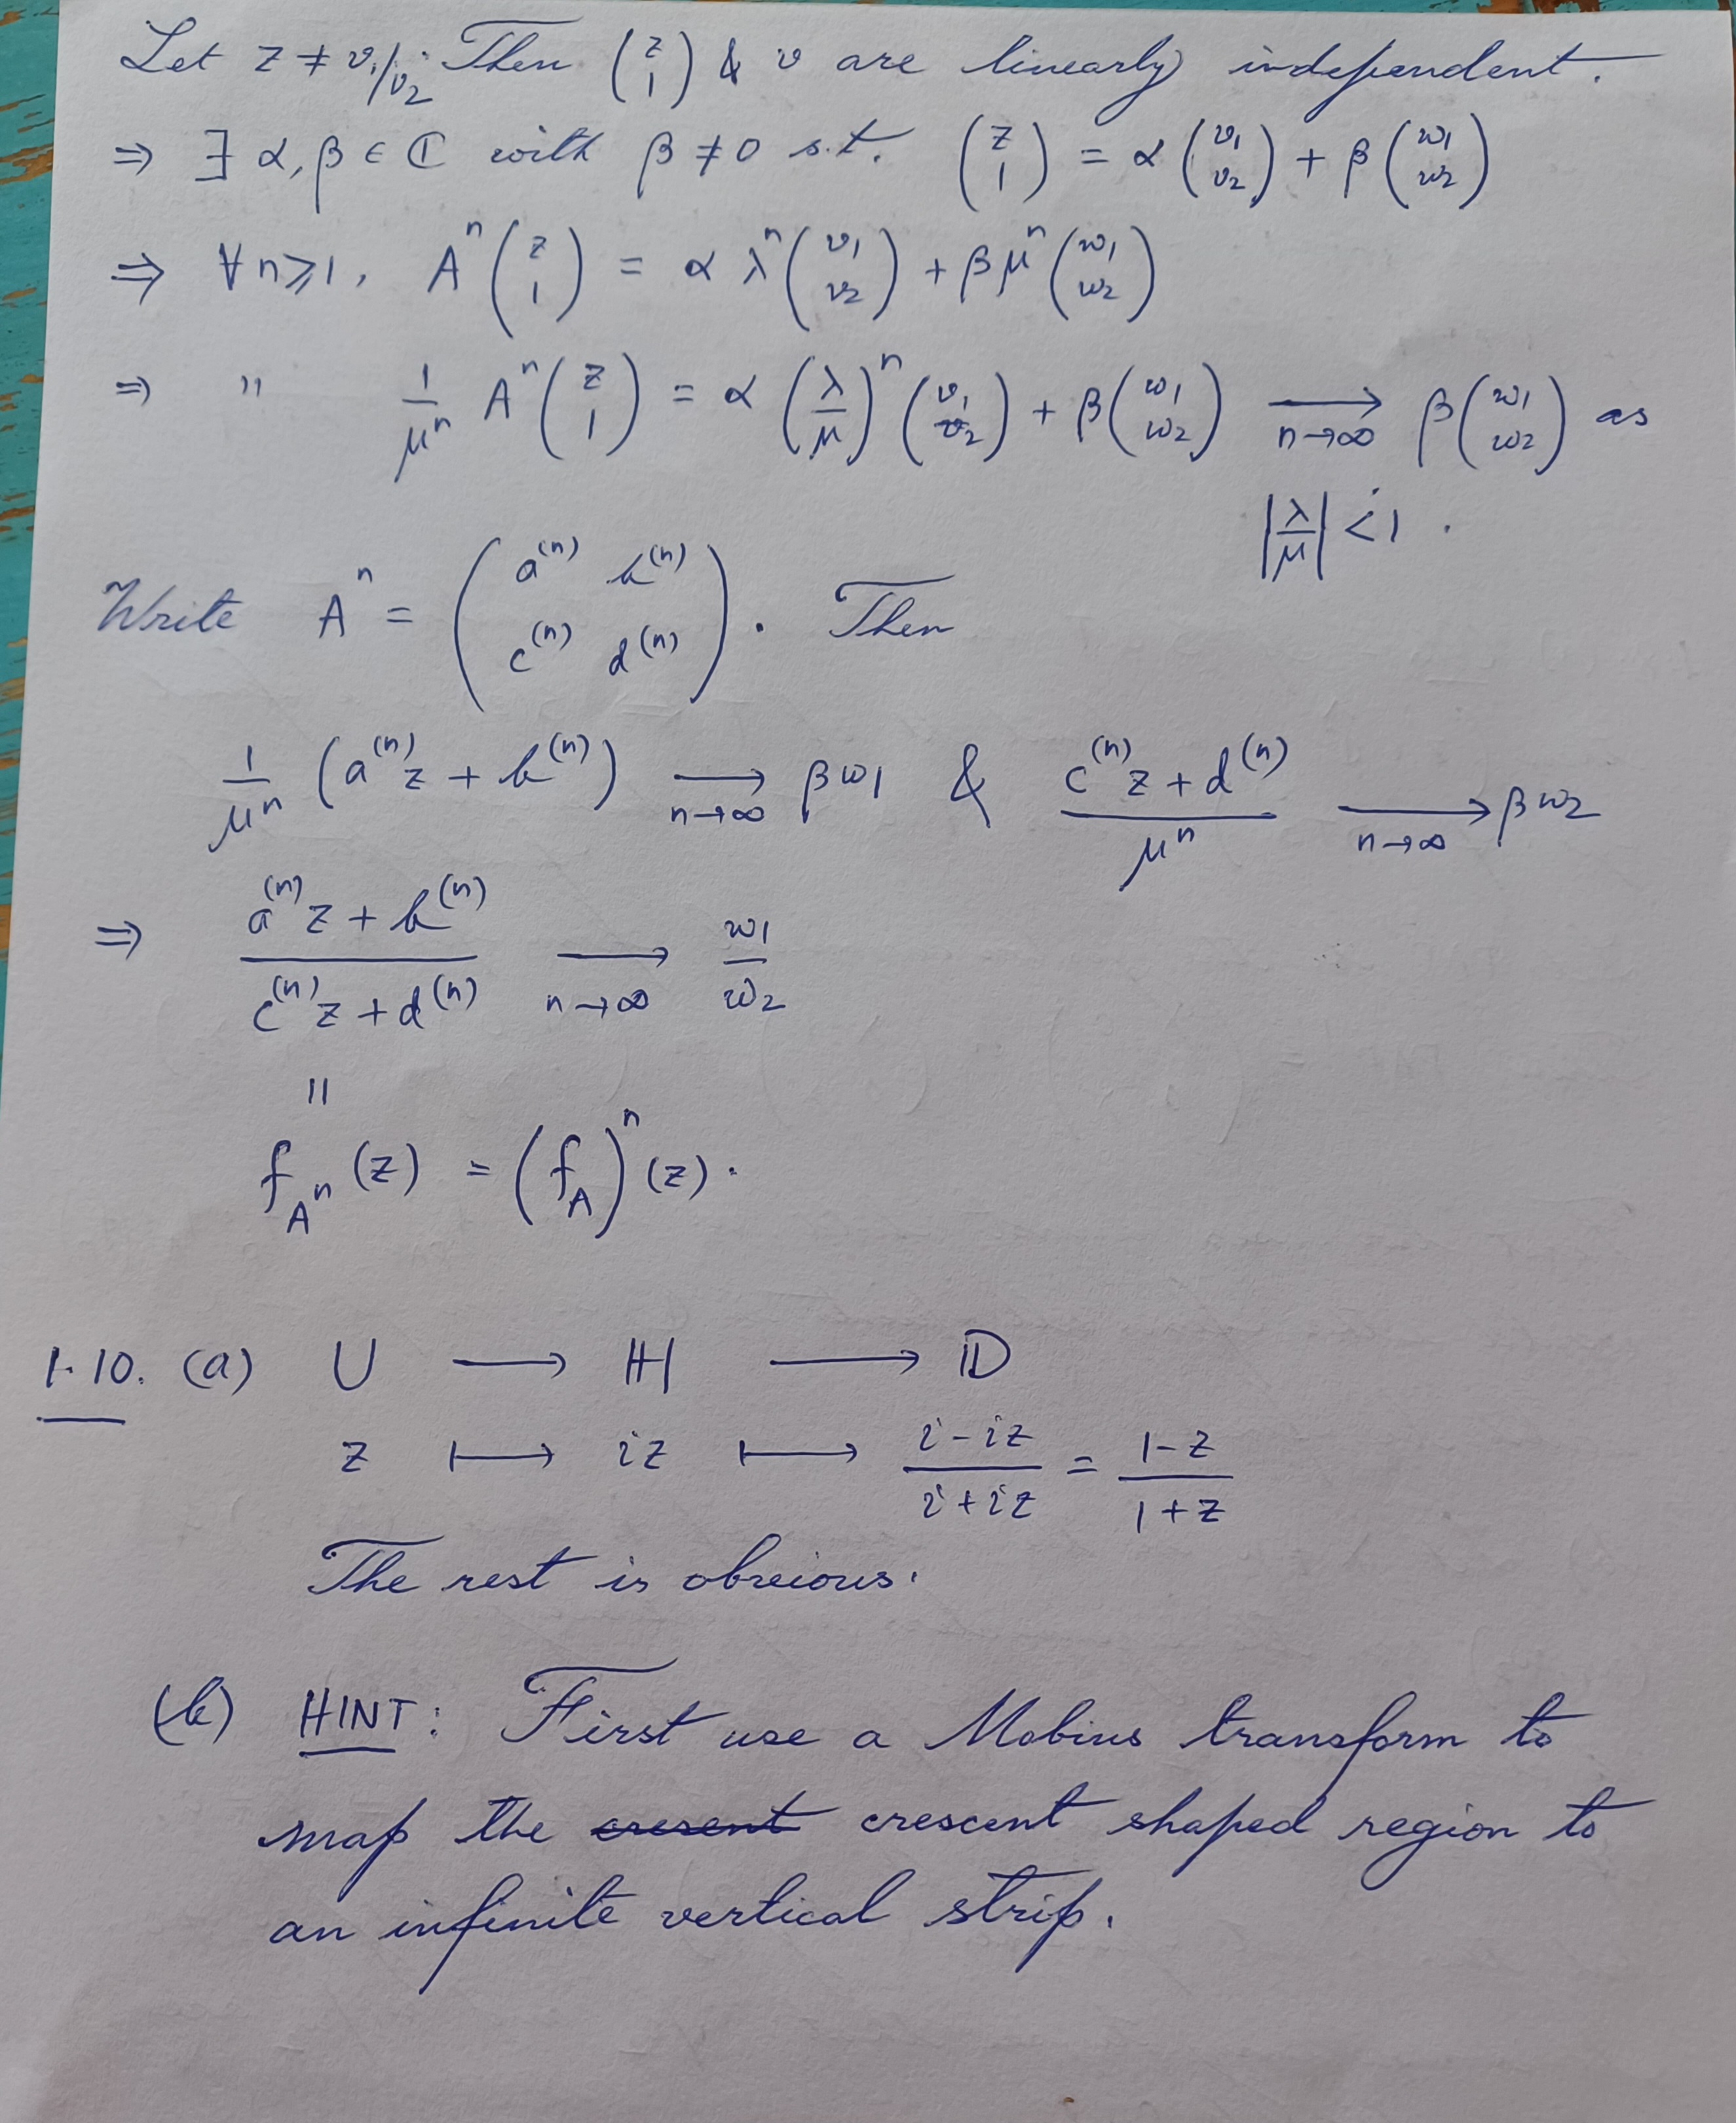 Let z ≠ v₁/v₂. Then (z 1) & v are linearly independent.
⇒ ∃ α, β ∈ ℂ with β ≠ 0 s.t. (z 1) = α (v₁ v₂) + β (w₁ w₂)
⇒ ∀ n ≥ 1, Aⁿ (z 1) = α λⁿ (v₁ v₂) + β μⁿ (w₁ w₂)
⇒ " 1/μⁿ Aⁿ (z 1) = α (λ/μ)ⁿ (v₁ v₂) + β (w₁ w₂) ⟶ n→∞ β (w₁ w₂) as
|λ/μ| < 1.
Write Aⁿ = (a⁽ⁿ⁾ b⁽ⁿ⁾ c⁽ⁿ⁾ d⁽ⁿ⁾). Then
1/μⁿ (a⁽ⁿ⁾z + b⁽ⁿ⁾) ⟶ n→∞ βw₁ & (c⁽ⁿ⁾z + d⁽ⁿ⁾)/μⁿ ⟶ n→∞ βw₂
⇒ (a⁽ⁿ⁾z + b⁽ⁿ⁾)/(c⁽ⁿ⁾z + d⁽ⁿ⁾) ⟶ n→∞ w₁/w₂
||
f_Aⁿ (z) = (f_A)ⁿ (z).
1.10. (a) U ⟶ ℍ ⟶ 𝔻
z ⟼ iz ⟼ (i-iz)/(i+iz) = (1-z)/(1+z)
The rest is obvious.
(b) HINT: First use a Mobius transform to
map the cresent crescent shaped region to
an infinite vertical strip.